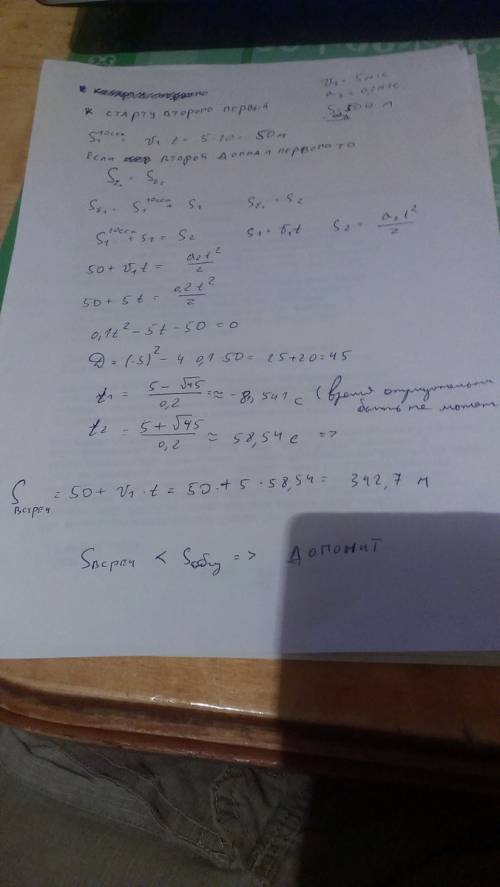 V₁ = 5 м/с
к старту второго первый
S₁^10сек = V₁ t = 5·10 = 50м
Если второй догнал первого то
S₁⁽¹⁰ сек⁾ + S₁ = S₂ S₁ = V₁t S₂ = a₂t²/2
50 + V₁t = a₂t²/2
50 + 5t = 0,2t²/2
0,1t² - 5t - 50 = 0
D = (-5)² - 4·0,1·50 = 25+20 = 45
t₁ = (5 - √45)/0,2 = ≈ -8,541 с (время отрицательн
быть не может
t₂ = (5 + √45)/0,2 ≈ 58,54 с =>
S встреч = 50 + V₁·t = 50 + 5·58,54 = 342,7 м
S встреч < S общ => догонит